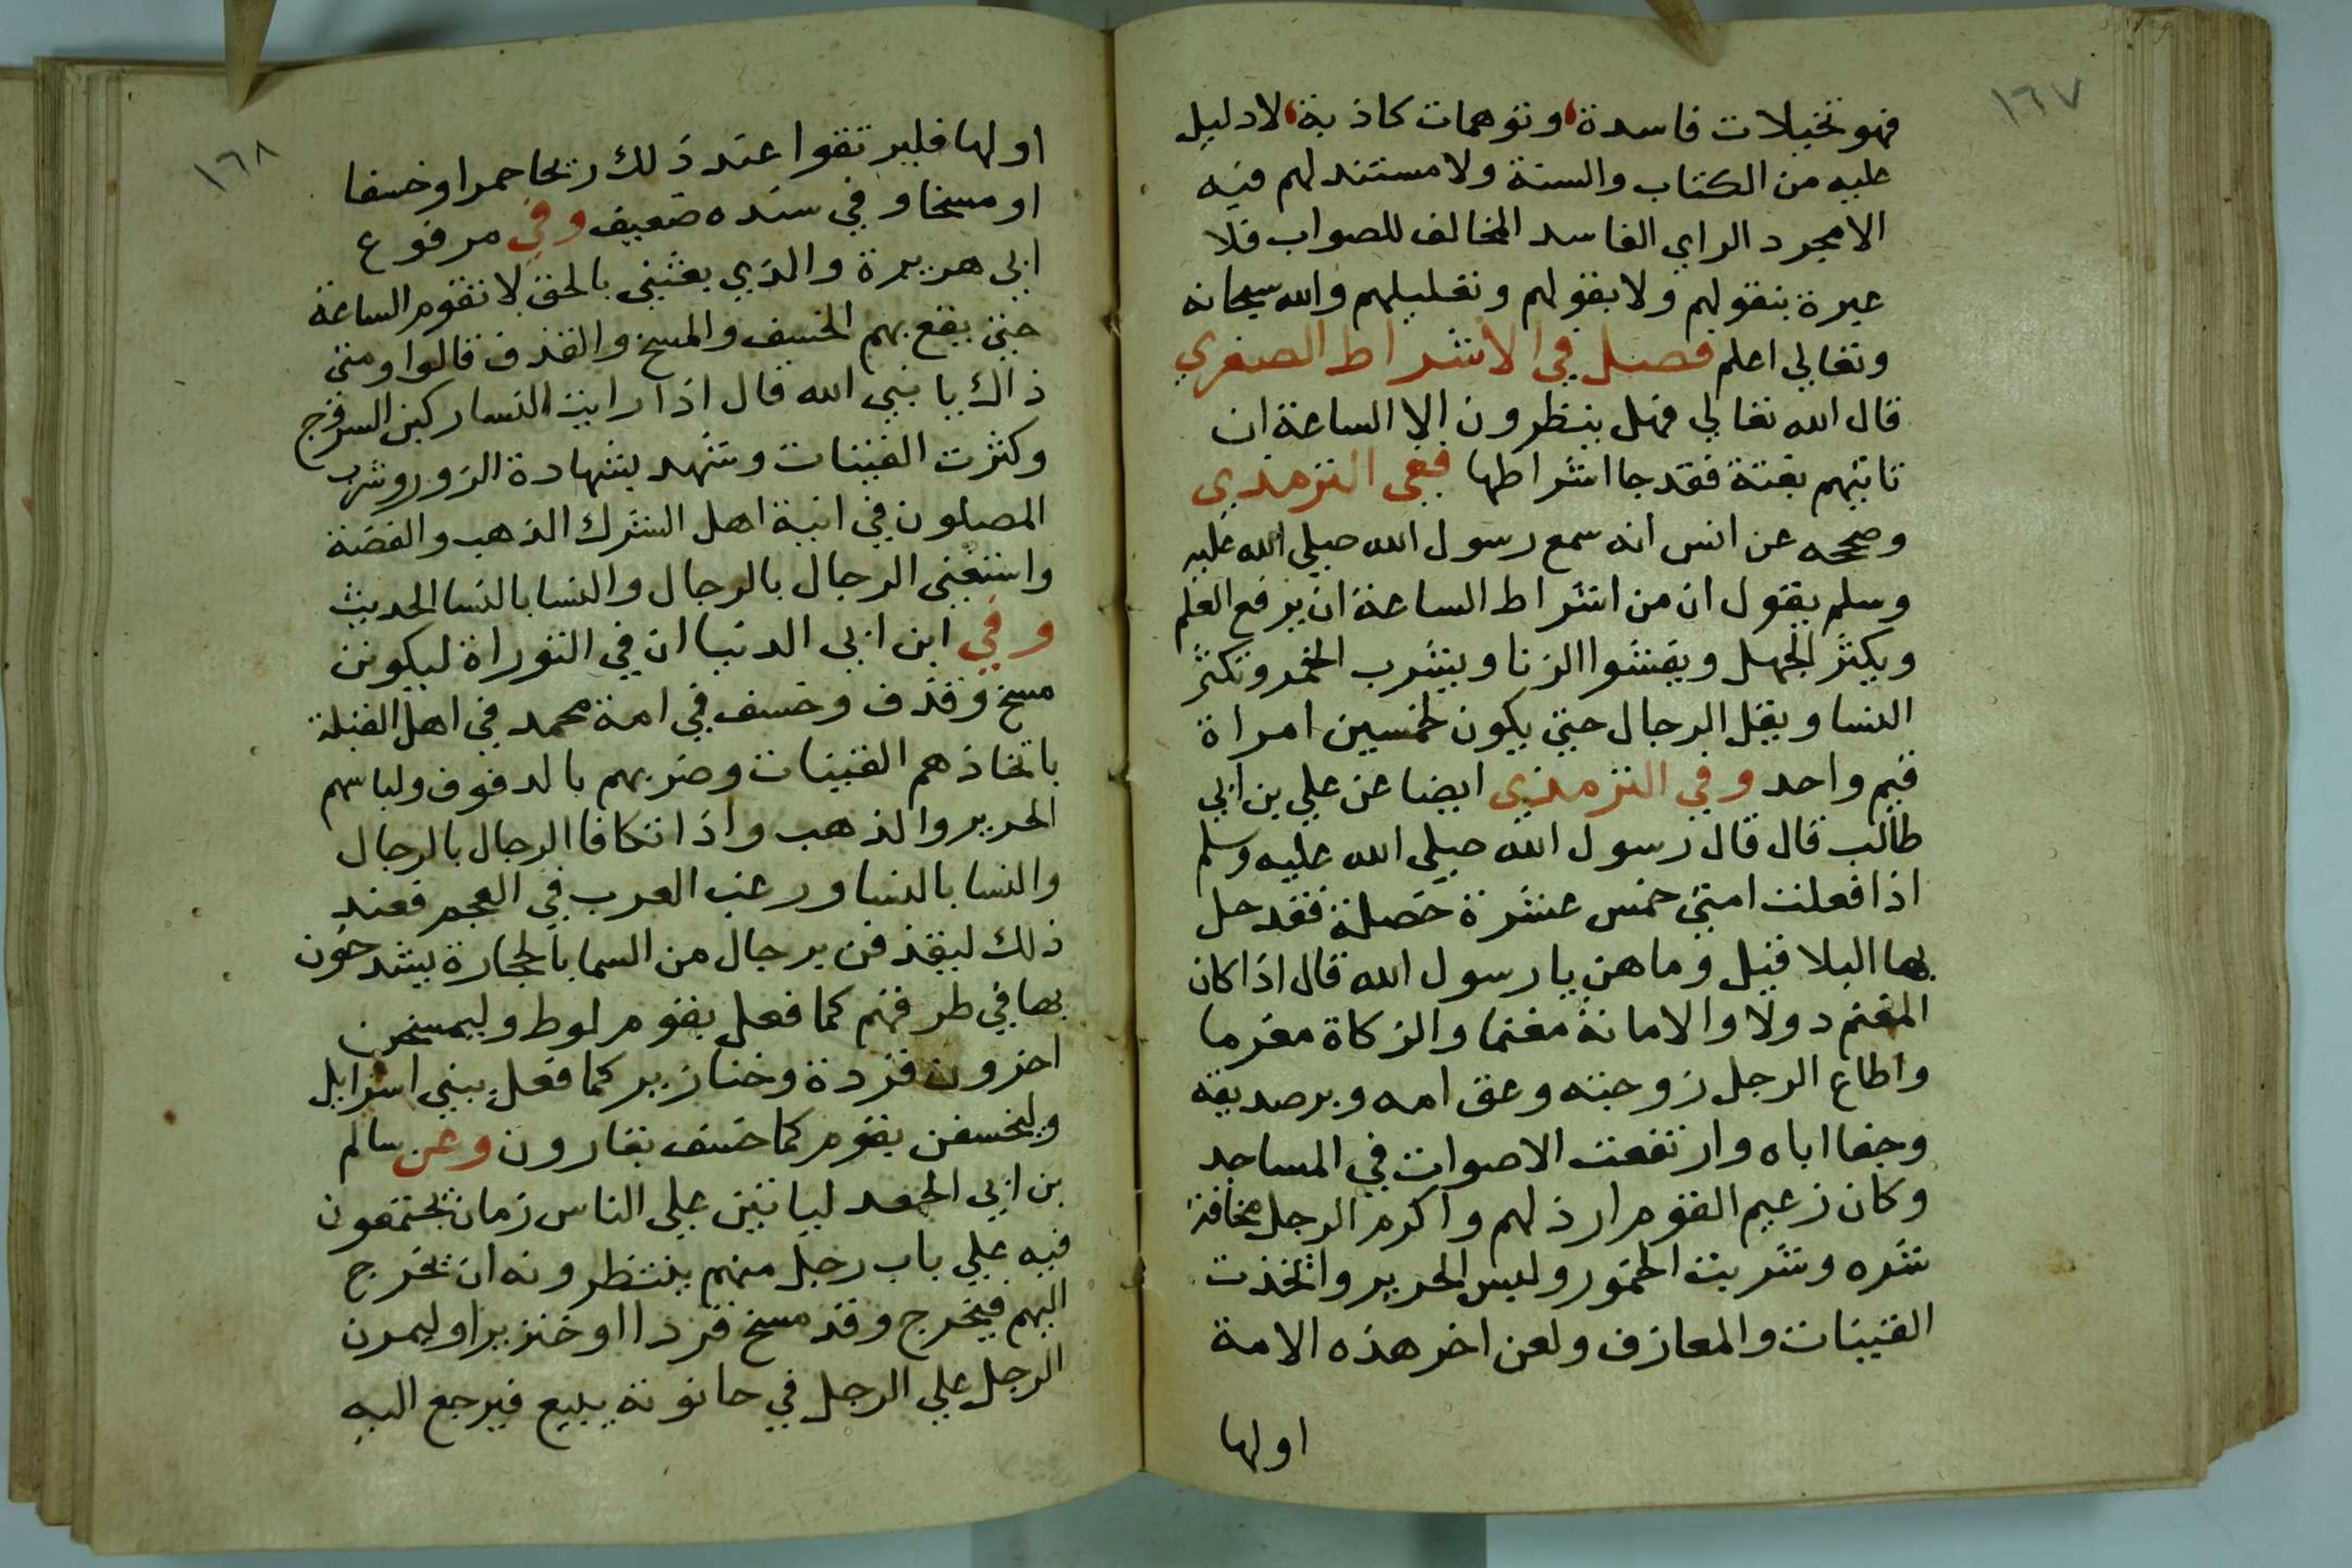 ١٦٧
فهو تخيلات فاسدة، وتوهمات كاذبة، لا دليل
عليه من الكتاب والسنة ولا مستند لهم فيه
الا مجرد الراي الفاسد المخالف للصواب فلا
عبرة بنقولهم ولا بقولهم وتعليلهم والله سبحانه
وتعالي اعلم فصل في الاشراط الصغري
قال الله تعالي فهل ينظرون الا الساعة ان
تاتيهم بغتة فقد جا اشراطها ففي الترمذي
وصححه عن انس انه سمع رسول الله صلي الله عليه
وسلم يقول ان من اشراط الساعة ان يرفع العلم
ويكثر الجهل ويفشوا الزنا ويشرب الخمر وتكثر
النسا ويقل الرجال حتي يكون لخمسين امراة
قيم واحد وفي الترمذي ايضا عن علي بن ابي
طالب قال قال رسول الله صلي الله عليه وسلم
اذا فعلت امتي خمس عشرة خصلة فقد حل
بها البلا قيل وما هن يا رسول الله قال اذا كان
المغنم دولا والامانة مغنما والزكاة مغرما
واطاع الرجل زوجته وعق امه وبر صديقه
وجفا اباه وارتفعت الاصوات في المساجد
وكان زعيم القوم ارذلهم واكرم الرجل مخافة
شره وشربت الخمور ولبس الحرير واتخذت
القينات والمعازف ولعن اخر هذه الامة
اولها
١٦٨
اولها فليرتقوا عند ذلك ريحا حمرا وخسفا
او مسخا وفي سنده ضعيف وفي مرفوع
ابي هريرة والذي بعثني بالحق لا تقوم الساعة
حتي يقع بهم الخسف والمسخ والقذف قالوا ومتي
ذاك يا نبي الله قال اذا رايت النسا ركبن السروج
وكثرت القينات وشهد بشهادة الزور وشرب
المصلون في انية اهل الشرك الذهب والفضة
واستغني الرجال بالرجال والنسا بالنسا الحديث
وفي ابن ابي الدنيا ان في التوراة ليكونن
مسخ وقذف وخسف في امة محمد في اهل القبلة
باتخاذهم القينات وضربهم بالدفوف ولباسهم
الحرير والذهب واذا تكافا الرجال بالرجال
والنسا بالنسا ورغب العرب في العجم فعند
ذلك ليقذفن برجال من السما بالحجارة يشدخون
بها في طرقهم كما فعل بقوم لوط وليمسخن
اخرون قردة وخنازير كما فعل ببني اسرايل
وليخسفن بقوم كما خسف بقارون وعن سالم
بن ابي الجعد لياتين علي الناس زمان يجتمعون
فيه علي باب رجل منهم ينتظرونه ان يخرج
اليهم فيخرج وقد مسخ قردا او خنزيرا وليمرن
الرجل علي الرجل في حانوته يبيع فيرجع اليه